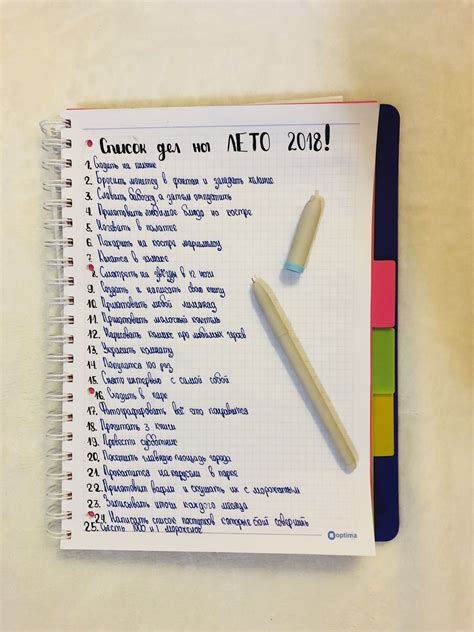 Список дел на ЛЕТО 2018!
1. Сходить на пикник
2. Бросить монетку в фонтан и загадать желание
3. Словить бабочку а затем отпустить
4. Приготовить любимое блюдо на костре
5. Ночевать в палатке
6. Пожарить на костре маршмеллоу
7. в гамаке
8. Смотреть на звёзды в 12 ночи
9. Создать и написать свою книгу
10. Приготовить любой лимонад
11. Приготовить молочный коктейль
12. Нарисовать комикс про любимых героев
13. Украсить комнату
14. Покупаться 100 раз
15. Снять интервью с самой собой
16. Сходить в парк
17. Фотографировать всё что понравится
18. Прочитать 3 книги
19. Провести субботник
20. Посетить главную площадь города
21. Прокатиться на карусели в парке
22. Приготовить вафли и скушать их с мороженым
23. Записывать итоги каждого месяца
24. Написать список поступков которые боюсь совершить
25. Съесть 1000 и 1 мороженое
optima